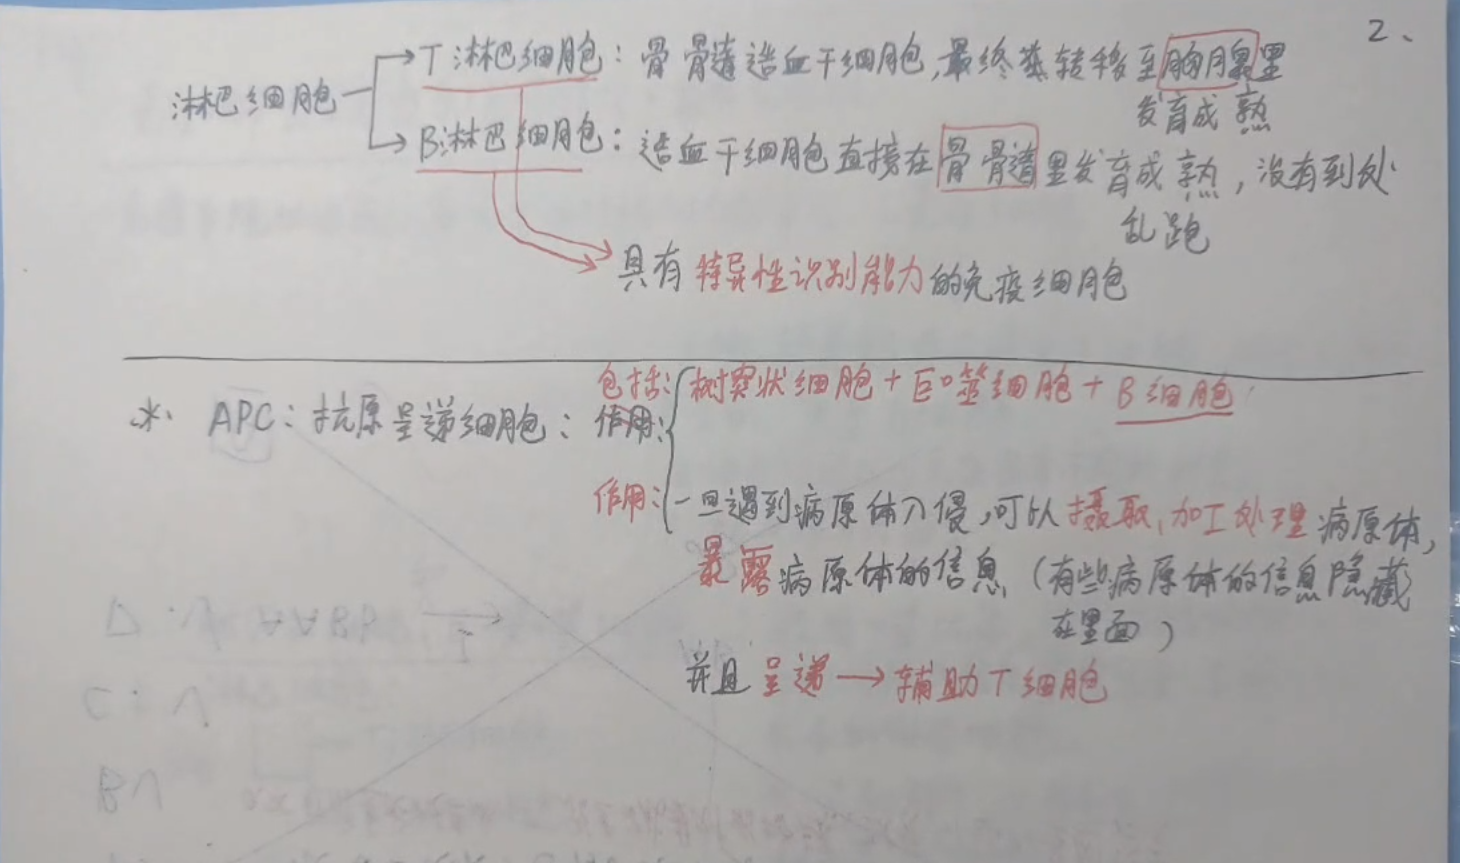 2、
淋巴细胞
T淋巴细胞：骨骨髓造血干细胞,最终转移至胸腺里
发育成熟
B淋巴细胞：造血干细胞直接在骨骨髓里发育成熟，没有到处
乱跑
具有特异性识别能力的免疫细胞
包括:树突状细胞+巨噬细胞+B细胞
* APC：抗原呈递细胞：作用:
作用:一旦遇到病原体入侵,可以摄取,加工处理病原体,
暴露病原体的信息（有些病原体的信息隐藏
在里面）
并且呈递→辅助T细胞